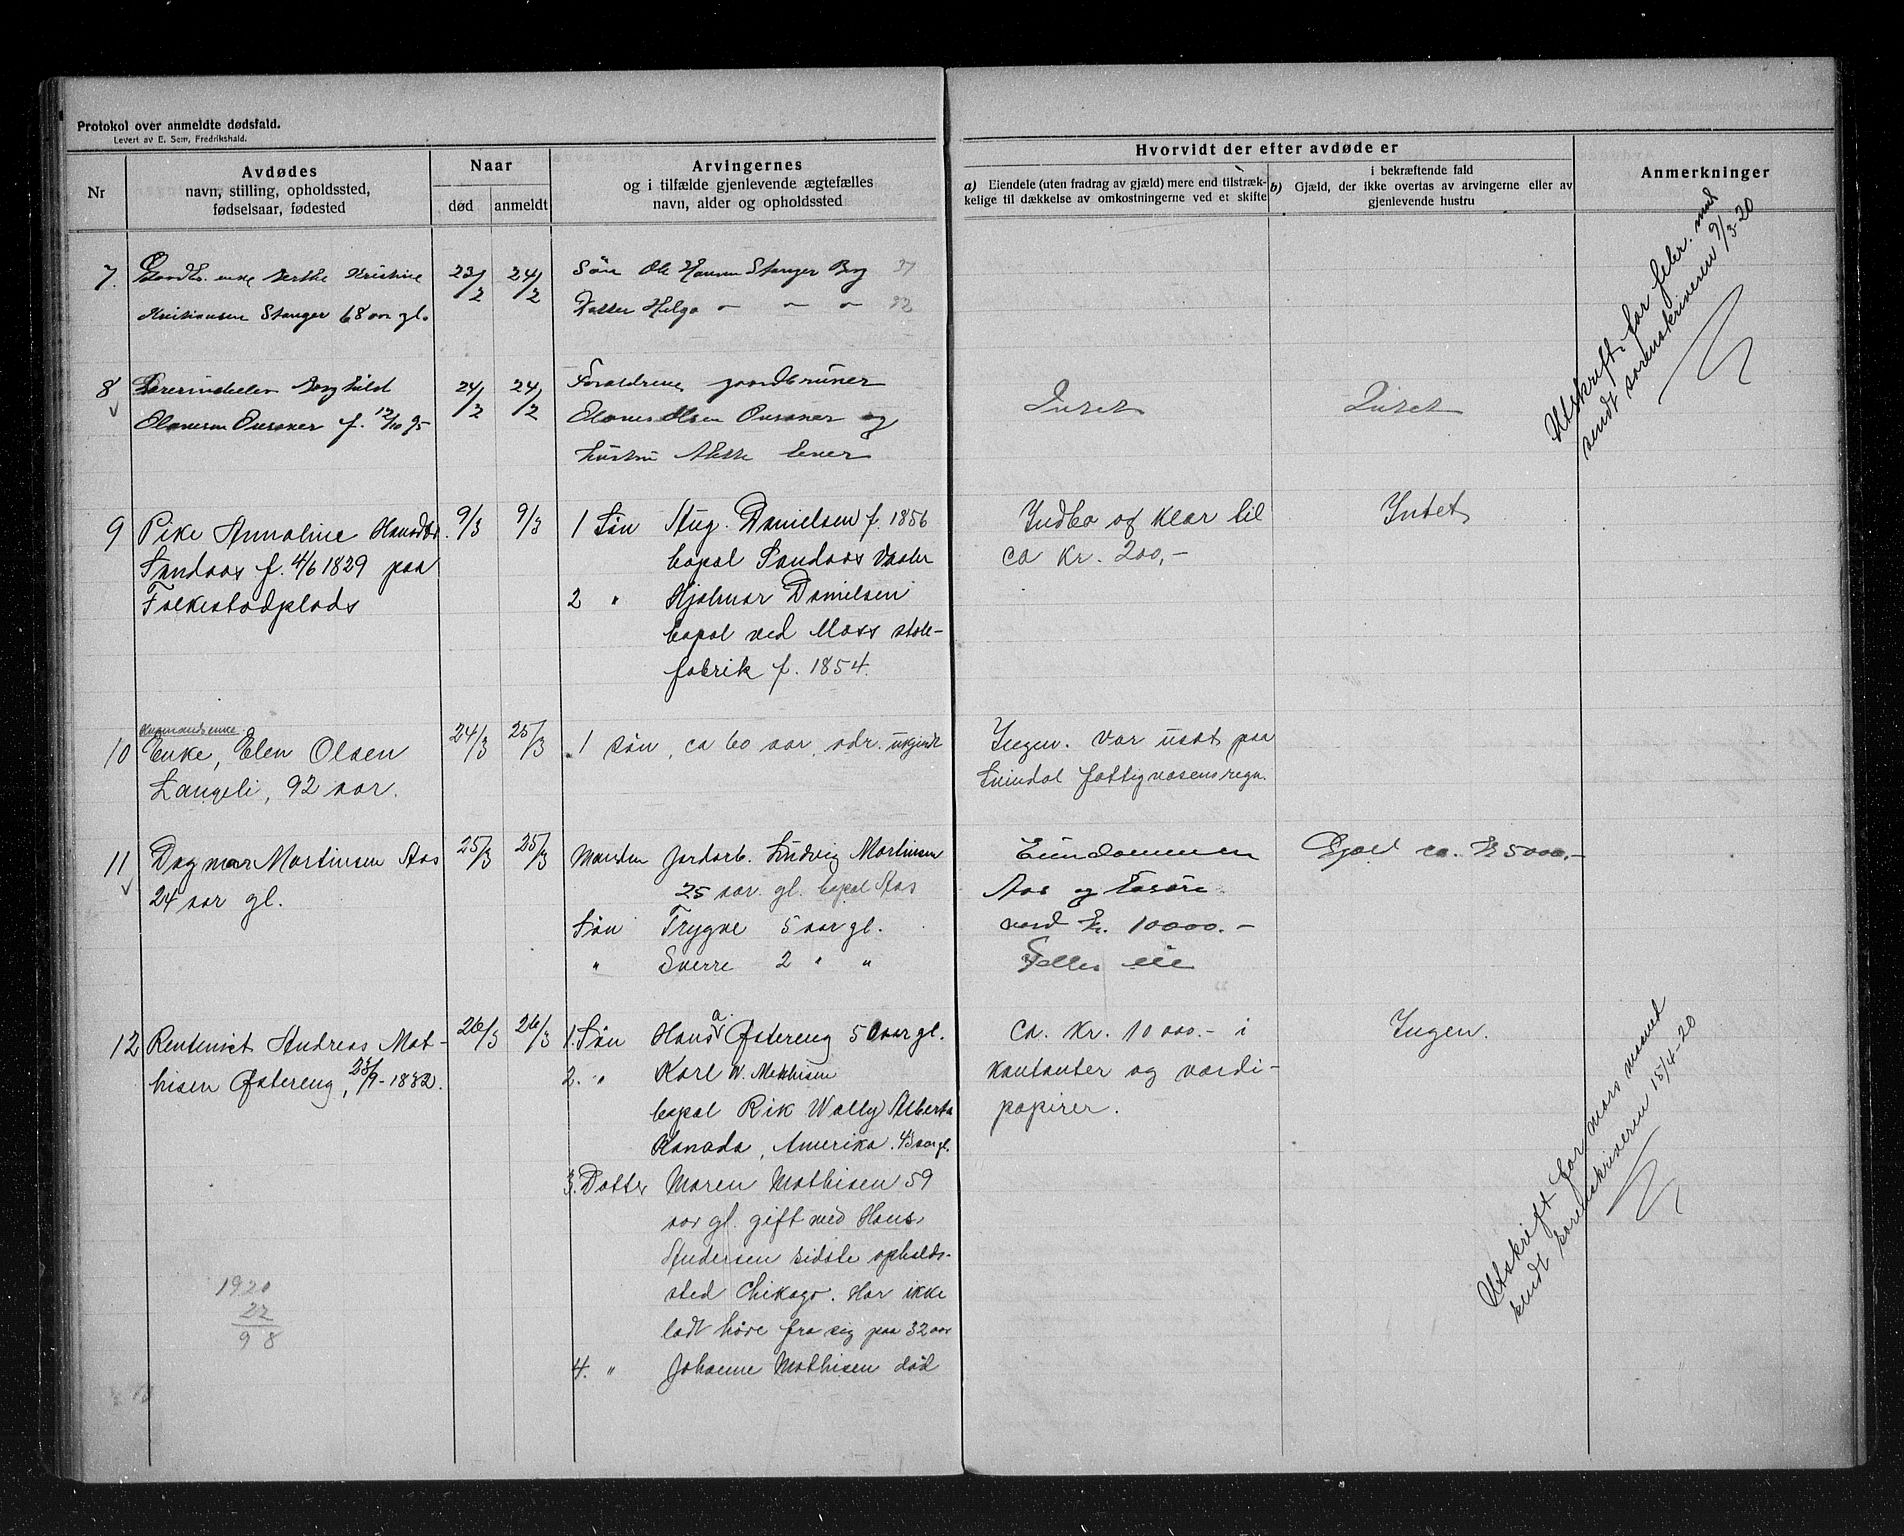 Protokol over anmeldte dødsfald.
Levert av E. Sem, Fredrikshald.
Nr
Avdødes
navn, stilling, opholdssted,
fødselsaar, fødested
Naar
død
anmeldt
Arvingernes
og i tilfælde gjenlevende ægtefælles
navn, alder og opholdssted
Hvorvidt der efter avdøde er
a) Eiendele (uten fradrag av gjæld) mere end tilstræk-
kelige til dækkelse av omkostningerne ved et skifte
i bekræftende fald
b) Gjæld, der ikke overtas av arvingerne eller av
gjenlevende hustru
Anmerkninger
7. enke Berthe Kristine
Kristiansen Stanger 68 aar gl.
23/2 24/2
Søn Ole Hansen Stanger Borg 37
Datter Helga " " " 32
8 Borghild
Olavesen f. 12/10 95
24/2 24/2
Forældrene gaardbruker
Olaves Olsen og
hustru lever
Intet
Intet
Utskrift for feber. mnd
sendt sorenskriveren 9/3-20
9 Pike Annoline Hansdtr.
Sandaas f. 4/6 1829 paa
Folkestadplads
9/3 9/3
1 Søn Aug. Danielsen f. 1856
bopæl Sandaas Vaaler
2 " Hjalmar Danielsen
bopæl ved Moss stole-
fabrik f. 1854.
Indbo og klær til
ca kr. 200,-
Intet
10 Enke, Elen Olsen
Langeli, 92 aar.
24/3 25/3
1 søn, ca 60 aar, adr. ukjendt
Ingen. Var utsat paa
Svindal fattigvæsens regn.
11 Dagmar Martinsen Aas
24 aar gl.
25/3 25/3
Manden Jordarb. Ludvig Martinsen
25 aar gl. bopæl Aas
Søn Trygve 5 aar gl.
" Sverre 2 " "
Eiendommen
Aas og
værd kr. 10000.-
Fælles eie
Gjæld ca. kr 5000,-
12 Rentenist Andreas Mat-
hisen Østereng, 23/9-1832.
26/3 26/3
1. Søn Hans A Østereng 50 aar gl.
2. " Karl W. Mathisen
bopæl Rik Wally Alberta
Kanada, Amerika. 43 aar gl.
3. Datter Maren Mathisen 59
aar gl. gift med Hans
Andersen sidste opholds-
sted Chikago. Har ikke
ladt høre fra sig paa 32 aar
4. " Johanne Mathisen død
ca. kr. 10 000.- i
kontanter og værdi-
papirer.
Ingen.
Utskrift for mars maaned
sendt sorenskriveren 15/4-20
1920
22
98